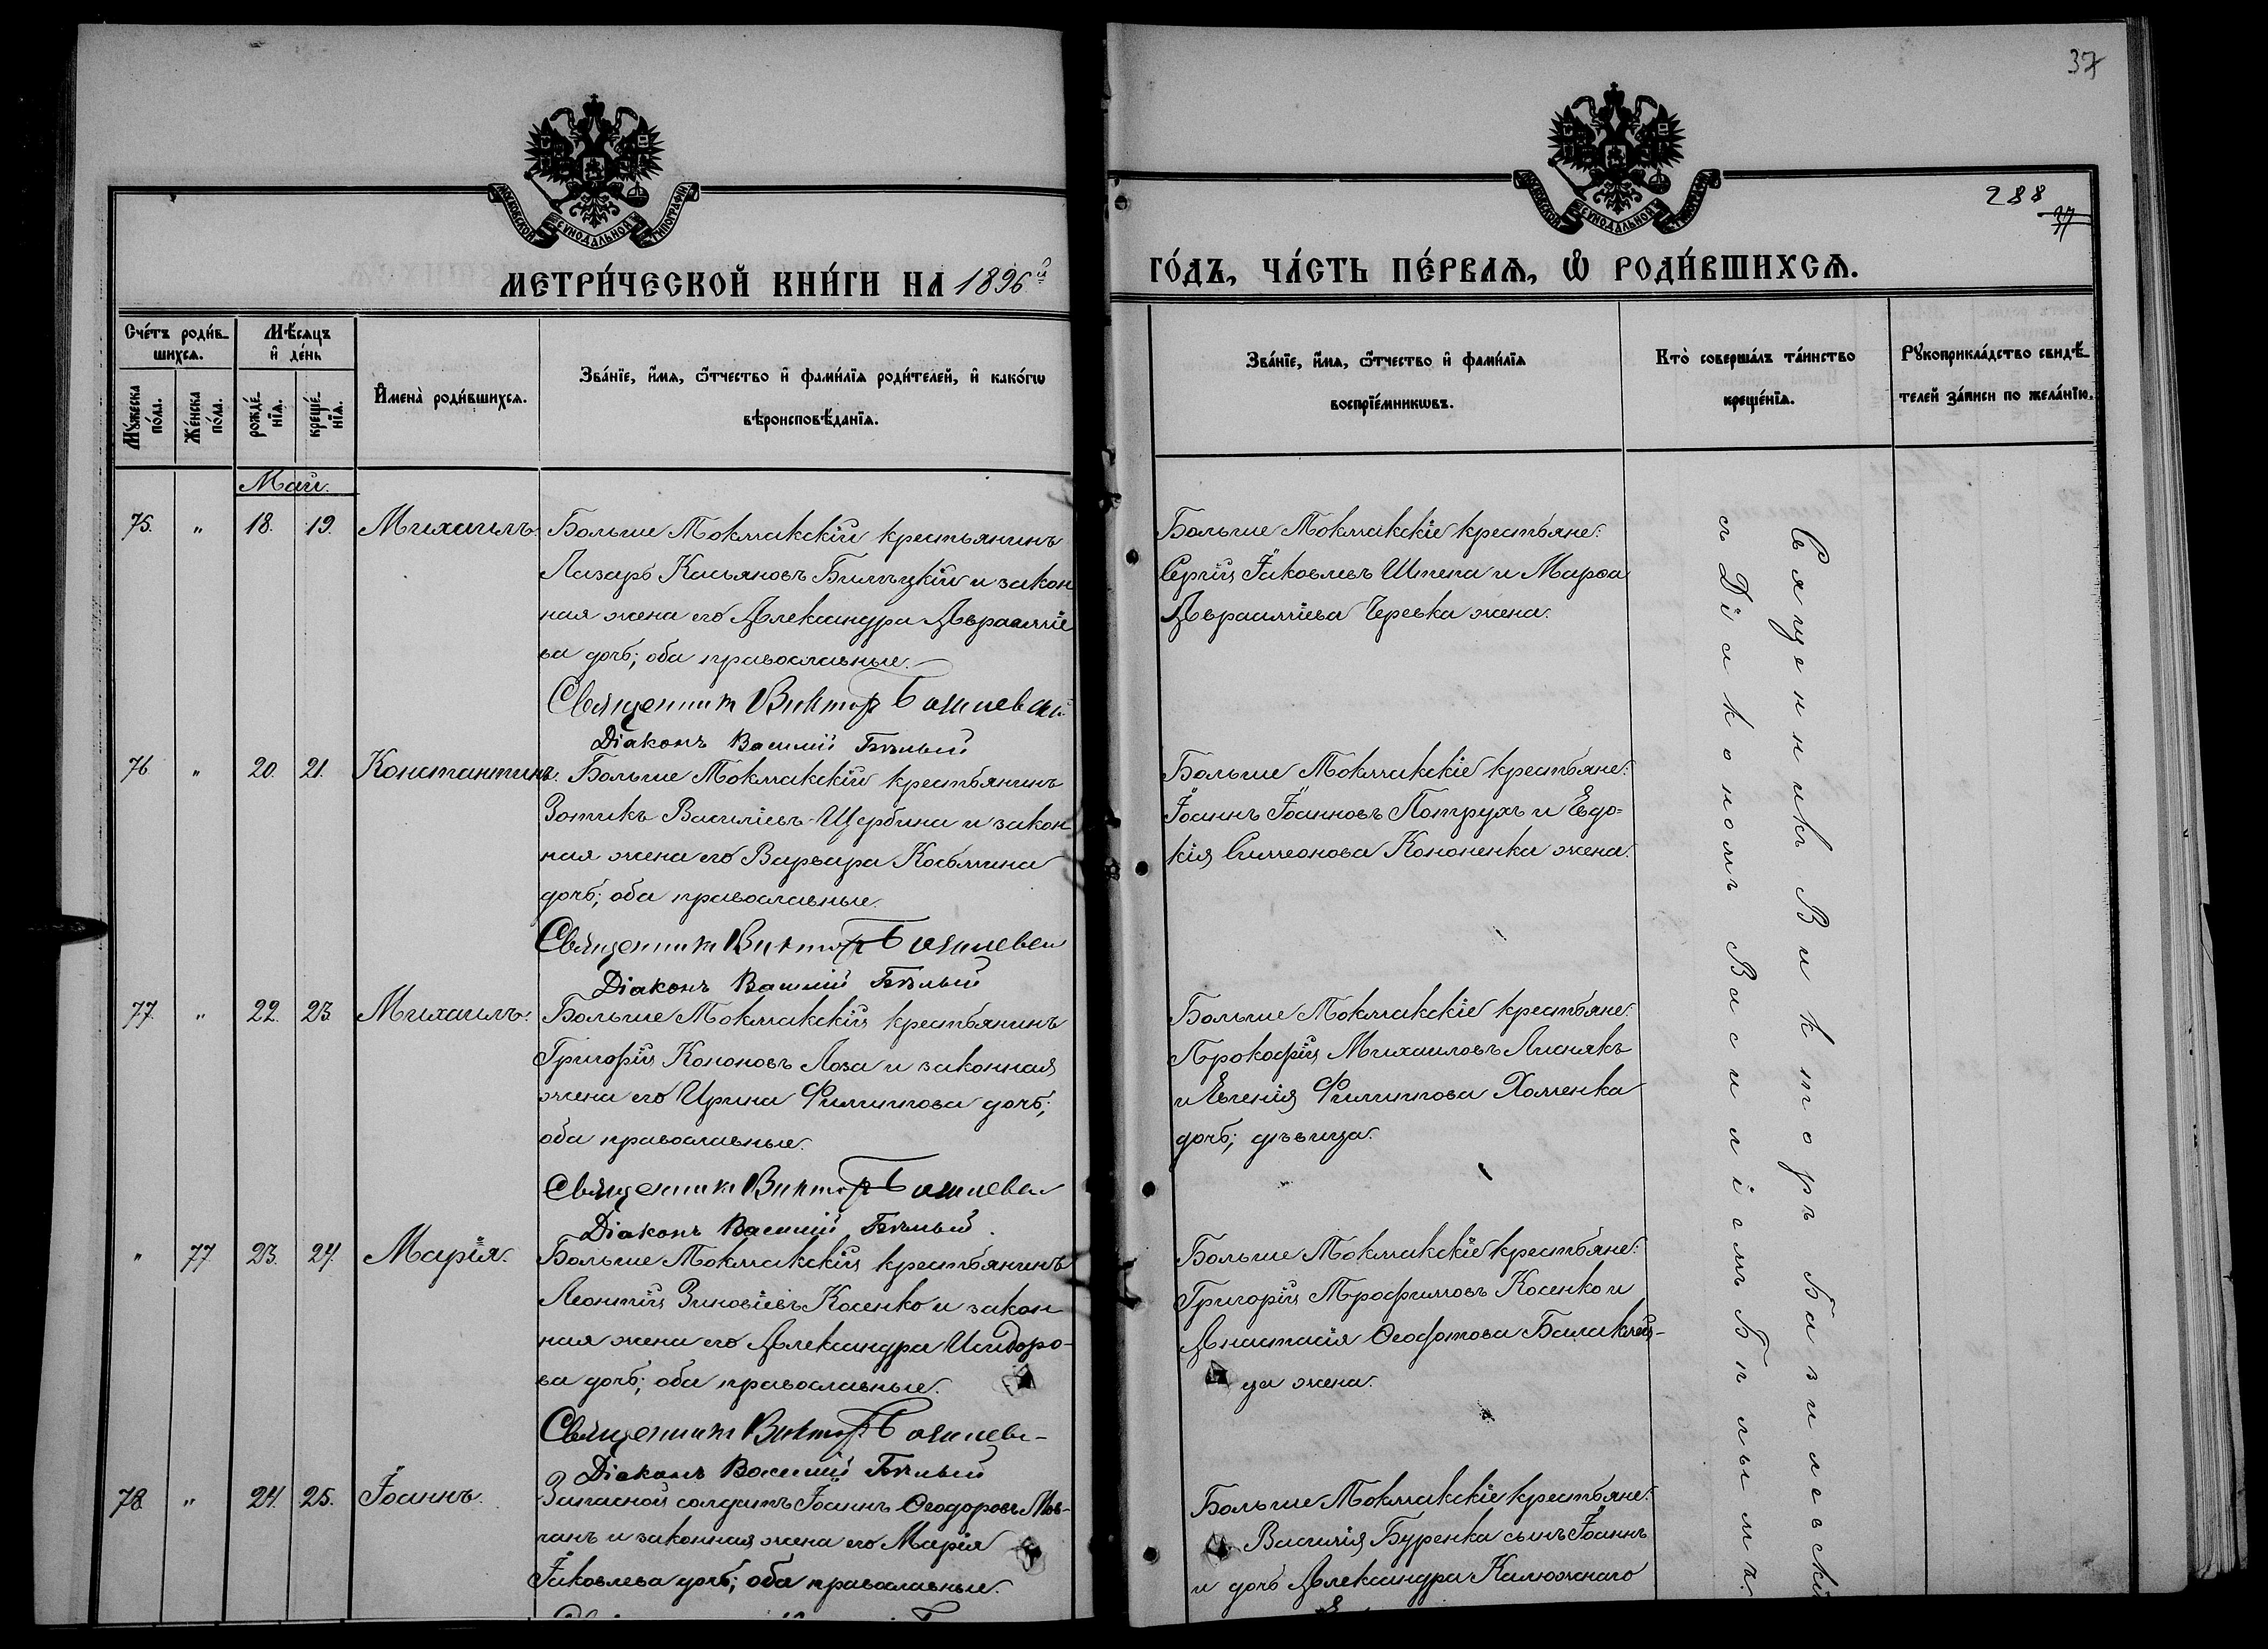 37
МОСКОВСКОЙ СѴНОДАЛЬНОЙ ТИПОГРАФІИ
МОСКОВСКОЙ СѴНОДАЛЬНОЙ ТИПОГРАФІИ
288
37
МЕТРИ́ЧЕСКОЙ КНИ́ГИ НА 1896й
ГО́ДЪ, ЧА́СТЬ ПЕ́РВАѦ, Ѽ РОДИ́ВШИХСѦ.
Сче́тъ роди́в-
шихсѧ.
Мꙋ́жеска
по́ла.
Же́нска
по́ла.
Мѣ́сяцъ
и҆ де́нь
рожде́-
нїѧ.
креще́-
нїѧ.
И҆мена̀ роди́вшихсѧ.
Зва́нїе, и҆́мѧ, ѻ҆́тчество и҆ фами́лїѧ роди́телей, и҆ како́гѡ
вѣроисповѣ́данїѧ.
Зва́нїе, и҆́мѧ, ѻ҆́тчество и҆ фами́лїѧ
воспрїе́мникѡвъ.
Кто̀ соверша́лъ та́инство
креще́нїѧ.
Рꙋкоприкла́дство свидѣ́-
телей за́писи по жела́нїю.
Май.
75. " 18. 19. Михаилъ.
Больше Токмакскій крестьянинъ
Лазарь Касьяновъ Билецкій и закон
ная жена его Александра Авраамїе
ва дочь; оба православные.
Священник Виктор Базилевский
Діаконъ Василій Бѣлый
Больше Токмакскіе крестьяне:
Сергій Іаковлевъ Штепа и Марѳа
Авраамїева Черевка жена.
76 " 20. 21. Константинъ.
Больше Токмакскій крестьянинъ
Зотикъ Василіевъ Щербина и закон
ная жена его Варвара Косьмина
дочь; оба православные.
Священник Виктор Базилевс
Діаконъ Василій Бѣлый
Больше Токмакскіе крестьяне:
Іоаннъ Іоанновъ Потрухъ и Евдо-
кія Симеонова Кононенка жена.
77. " 22. 23. Михаилъ.
Больше Токмакскій крестьянинъ
Григорій Кононовъ Лоза и законная
жена его Ирина Филиппова дочь;
оба православные.
Священник Виктор Базилевс
Діаконъ Василій Бѣлый.
Больше Токмакскіе крестьяне:
Прокофій Михаиловъ Лиснякъ
и Евгенія Филиппова Хоменка
дочь; дѣвица.
" 77 23. 24. Марія.
Больше Токмакскій крестьянинъ
Леонтій Зиновіевъ Косенко и закон
ная жена его Александра Исидоро-
ва дочь; оба православные.
Священник Виктор Базилевс
Діаконъ Василій Бѣлый
Больше Токмакскіе крестьяне:
Григорій Трофимовъ Косенко и
Анастасія Ѳеофотова Балаклей-
ца жена.
78 " 24. 25. Іоаннъ.
Запасной солдатъ Іоаннъ Ѳеодоровъ Мов-
чанъ и законная жена его Марія
Іаковлева дочь; оба православные.
Больше Токмакскіе крестьяне:
Василія Буренка сынъ Іоаннъ
и дочь Александра Калюжнаго
Священникъ Викторъ Базилевскій
съ Діакономъ Василіемъ Бѣлымъ.